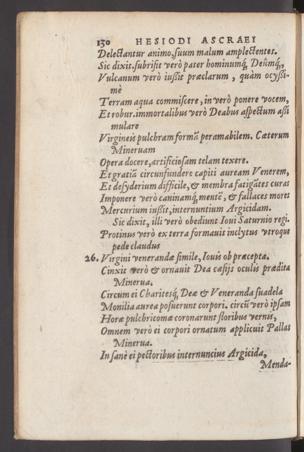 130 HESIODI ASCRAEI
Delectantur animo, suum malum amplectentes.
Sic dixit. subrisit verò pater hominumq́, Deûmq́,
Vulcanum verò iussit præclarum, quàm ocyssi-
mè
Terram aqua commiscere, in verò ponere vocem,
Et robur. immortalibus verò Deabus aspectum assi
mulare
Virgineis pulchram formã peramabilem. Cæterum
Mineruam
Opera docere, artificiosam telam texere.
Et gratiã circunfundere capiti auream Venerem,
Et desyderium difficile, & membra fatigãtes curas
Imponere verò caninamq́, mentẽ, & fallaces mores
Mercurium iussit, internuntium Argicidam.
Sic dixit, illi verò obediunt Ioui Saturnio regi.
Protinus verò ex terra formauit inclytus vtroque
pede claudus
26. Virgini venerandæ simile, Iouis ob præcepta.
Cinxit verò & ornauit Dea cæsijs oculis prædita
Minerua.
Circum ei Charitesq́, Deæ & Veneranda suadela
Monilia aurea posuerunt corpori. circũ verò ipsam
Horæ pulchricomæ coronarunt floribus vernis,
Omnem verò ei corpori ornatum applicuit Pallas
Minerua.
In sanè ei pectoribus internuncius Argicida,
Menda-